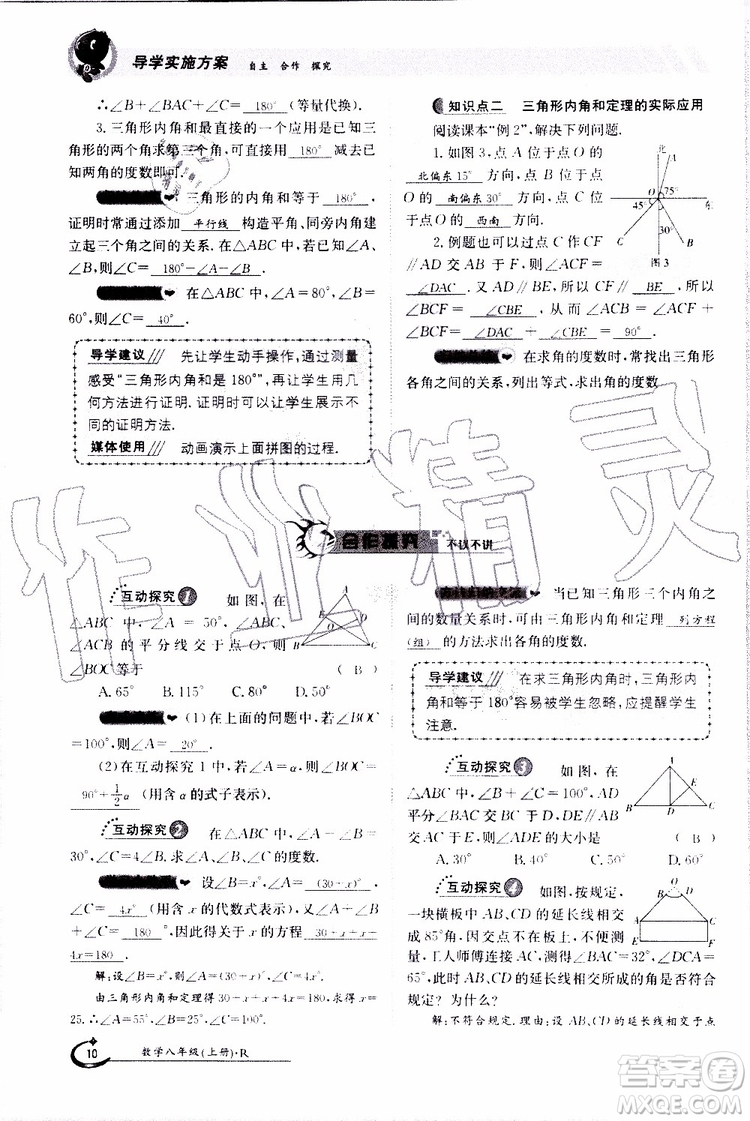 导学实施方案 自主 合作 探究
∴∠B+∠BAC+∠C= 180° (等量代换).
3. 三角形内角和最直接的一个应用是已知三
角形的两个角求第三角,可直接用 180° 减去已
知两角的度数即可.
三角形的内角和等于 180° ,
证明时常通过添加 平行线 构造平角、同旁内角建
立起三个角之间的关系. 在△ABC中,已知∠A、
∠B,则∠C= 180°-∠A-∠B .
在△ABC中,∠A=80°,∠B=
60°,则∠C= 40° .
导学建议 先让学生动手操作,通过测量
感受“三角形内角和是180°”,再让学生用几
何方法进行证明. 证明时,可以引导学生用不
同的证明方法.
媒体使用 动画演示上面拼图的过程.
知识点二 三角形内角和定理的实际应用
阅读课本“例2”,解决下列问题.
1. 如图3,点A位于点O的
北偏东15° 方向,点B位于点
O的 南偏东30° 方向,点C位
于点O的 西南 方向.
2. 例题也可以过点C作CF
∥AD交AB于F,则∠ACF=
∠DAC . 又AD∥BE,所以CF∥ BE ,所以
∠BCF= ∠CBE ,从而∠ACB=∠ACF+
∠BCF= ∠DAC + ∠CBE = 90° .
在求角的度数时,常找出三角形
各角之间的关系,列出等式,求出角的度数
A
O 75°
45° 东
30°
C B
图3
合作探究 不议不讲
互动探究1 如图,在
△ABC中,∠A=50°,∠ABC、
∠ACB的平分线交于点O,则
∠BOC等于 ( B )
A. 65° B. 115° C. 80° D. 50°
(1)在上面的问题中,若∠BOC
=100°,则∠A= 20° .
(2)在互动探究1中,若∠A=α,则∠BOC=
90°+1/2α (用含α的式子表示).
互动探究2 在△ABC中,∠A=∠B+
30°,∠C=4∠B. 求∠A、∠B、∠C的度数.
设∠B=x,则∠A= (30+x)° ,
∠C= 4x° (用含x的代数式表示),又∠A+∠B+
∠C= 180 °,因此得关于x的方程 30+x+x+
4x=180 .
解:设∠B=x°,则∠A=(30+x)°,∠C=4x°,
由三角形内角和定理得30+x+x+4x=180,求得x=
25. ∴∠A=55°,∠B=25°,∠C=100°.
当已知三角形三个内角之
间的数量关系时,可由三角形内角和定理 列方程
(组) 的方法求出各角的度数.
导学建议 在求三角形内角时,三角形内
角和等于180°容易被学生忽略,应提醒学生
注意.
互动探究3 如图,在
△ABC中,∠B=∠C=40°,AD
平分∠BAC,交BC于D,DE∥AB,
交AC于E,则∠ADE的大小是 ( B )
A. 30° B. 50° C. 40° D. 60°
互动探究4 如图,按规定,
一块横板中AB、CD的延长线相交
成85°角,因交点不在板上,不便测量,
工人师傅连接AC,测得∠BAC=30°,∠DCA=
65°,此时AB、CD的延长线相交所成的角是否符合
规定?为什么?
解:不符合规定. 理由:设AB、CD的延长线相交于点
10 数学八年级(上册)·R
作业精灵
答案圈
MXQE.COM